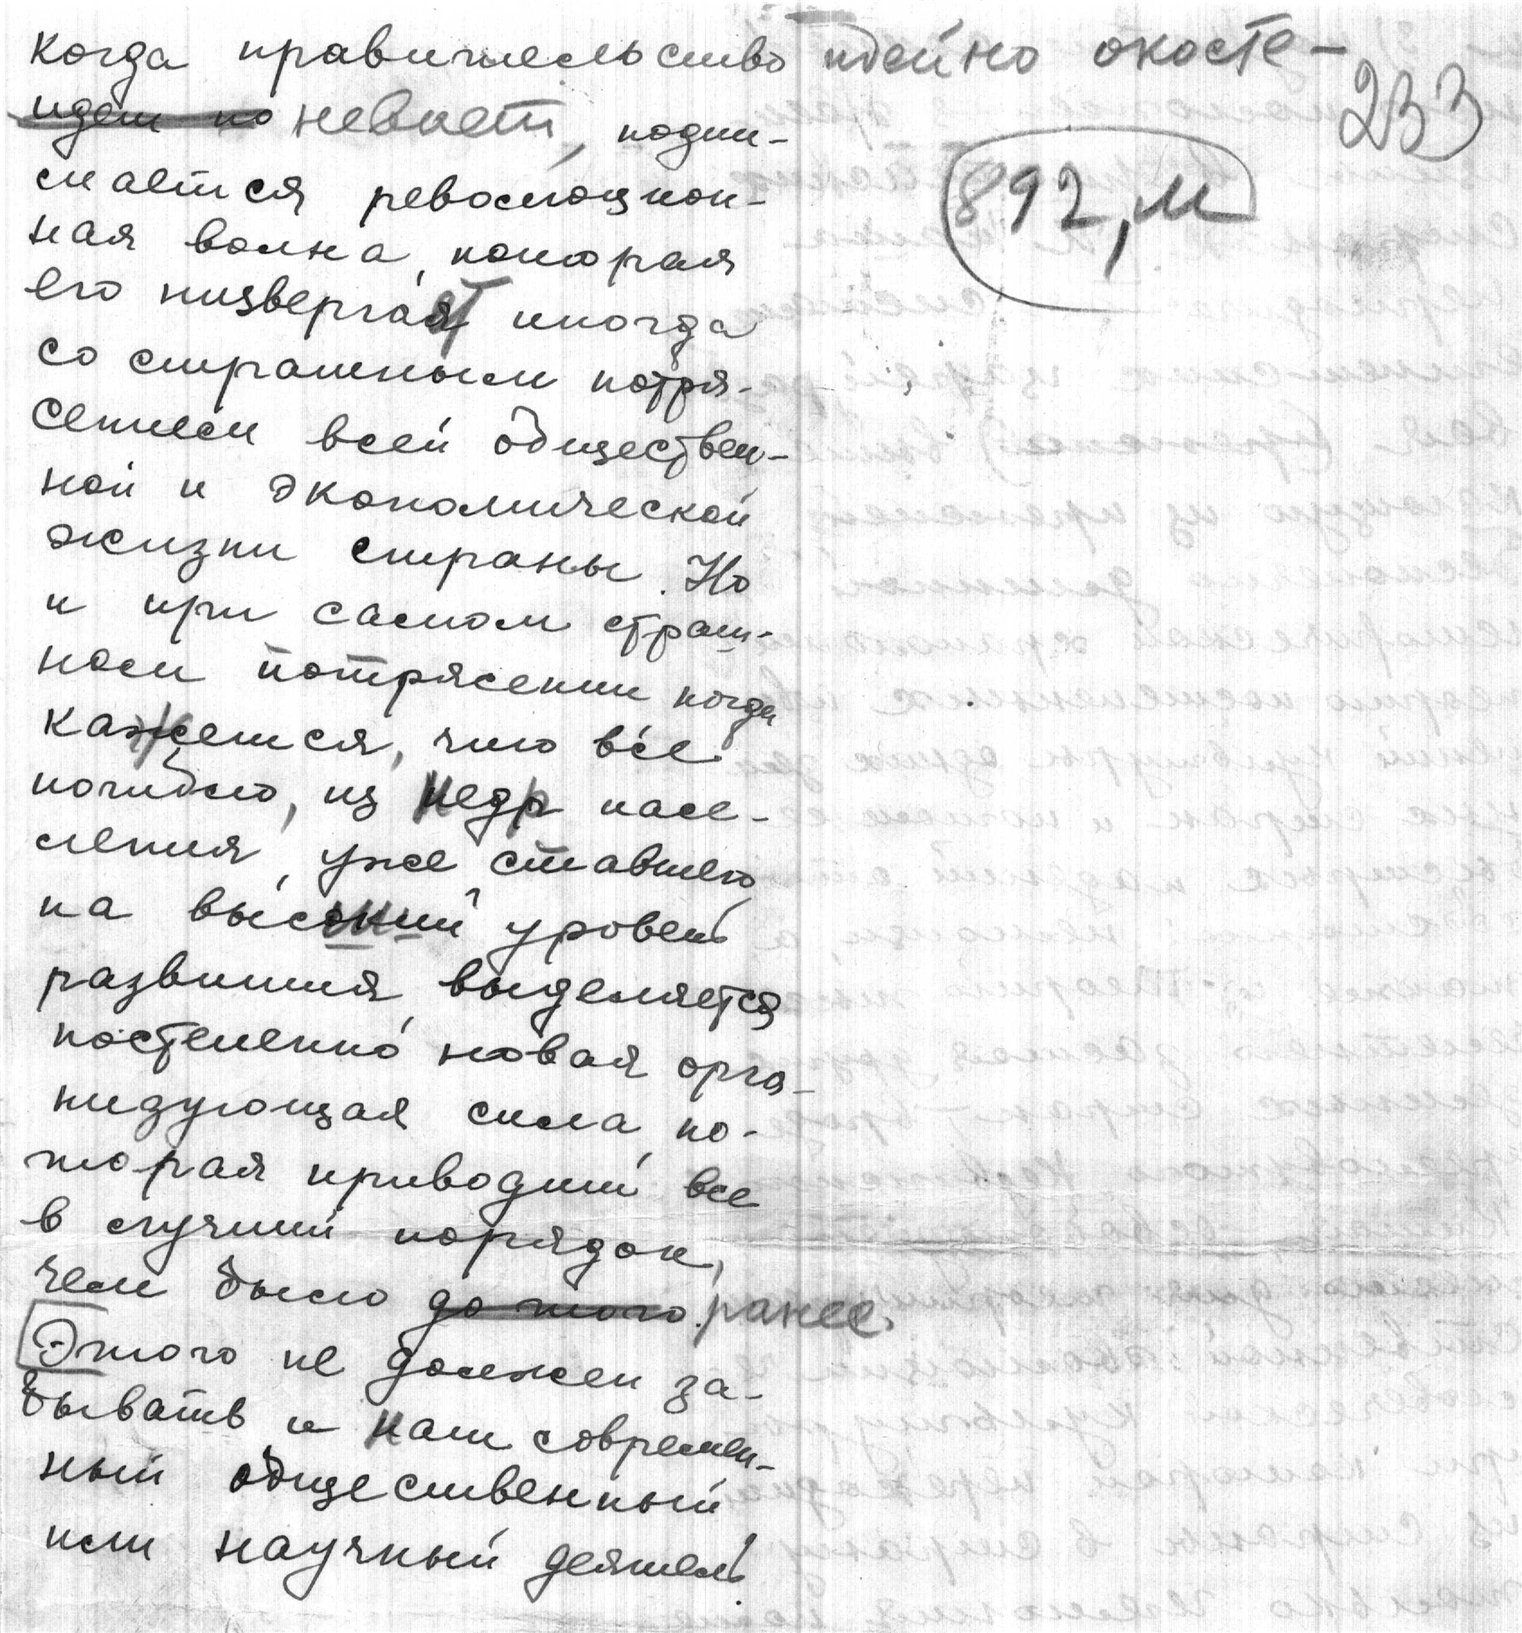 когда правительство идейно окосте-
233
идет по неваетъ, подни-
892, м
мается революцион-
ная волна, которая
его низвергает иногда
со страшным потря-
сением всей обществен-
ной и экономической
жизни страны. Но
и при самом страш-
ном потрясении когда
кажется, что все
погибло, из недр насе-
ления, уже ставшего
на высший уровень
развития, выделяется
постепенно новая орга-
низующая сила, ко-
торая приводит все
в лучший порядок,
чем было до того. ранее.
Этого не должен за-
бывать и наш современ-
ный общественный
или научный деятель.